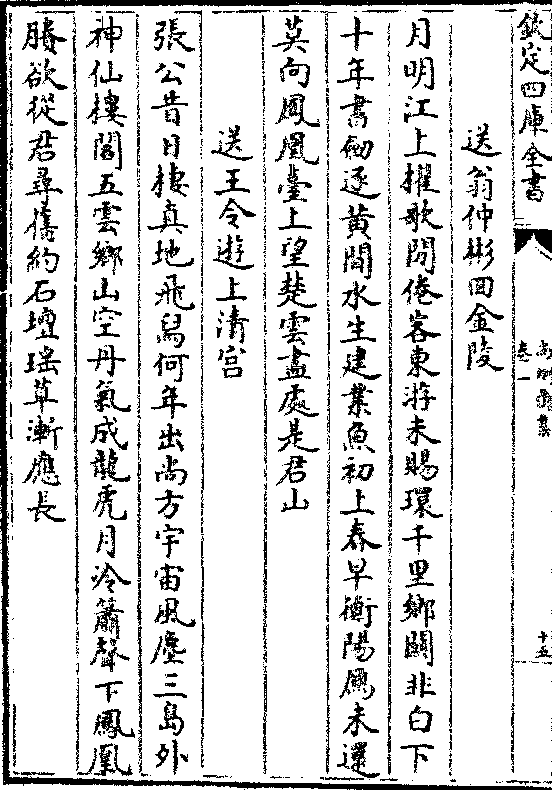 欽定四庫全書
尚絅齋集
卷一
十五
送翁仲彬回金陵
月明江上櫂歌閒倦客東游未賜環千里鄉關非白下
十年書劒逐黃間水生建業魚初上春早衡陽鴈未還
莫向鳳凰臺上望楚雲盡處是君山
送王令遊上清宮
張公昔日棲真地飛舄何年出尚方宇宙風塵三島外
神仙樓閣五雲鄉山空丹氣成龍虎月冷簫聲下鳳凰
勝欲從君尋舊約石壇瑤草漸應長